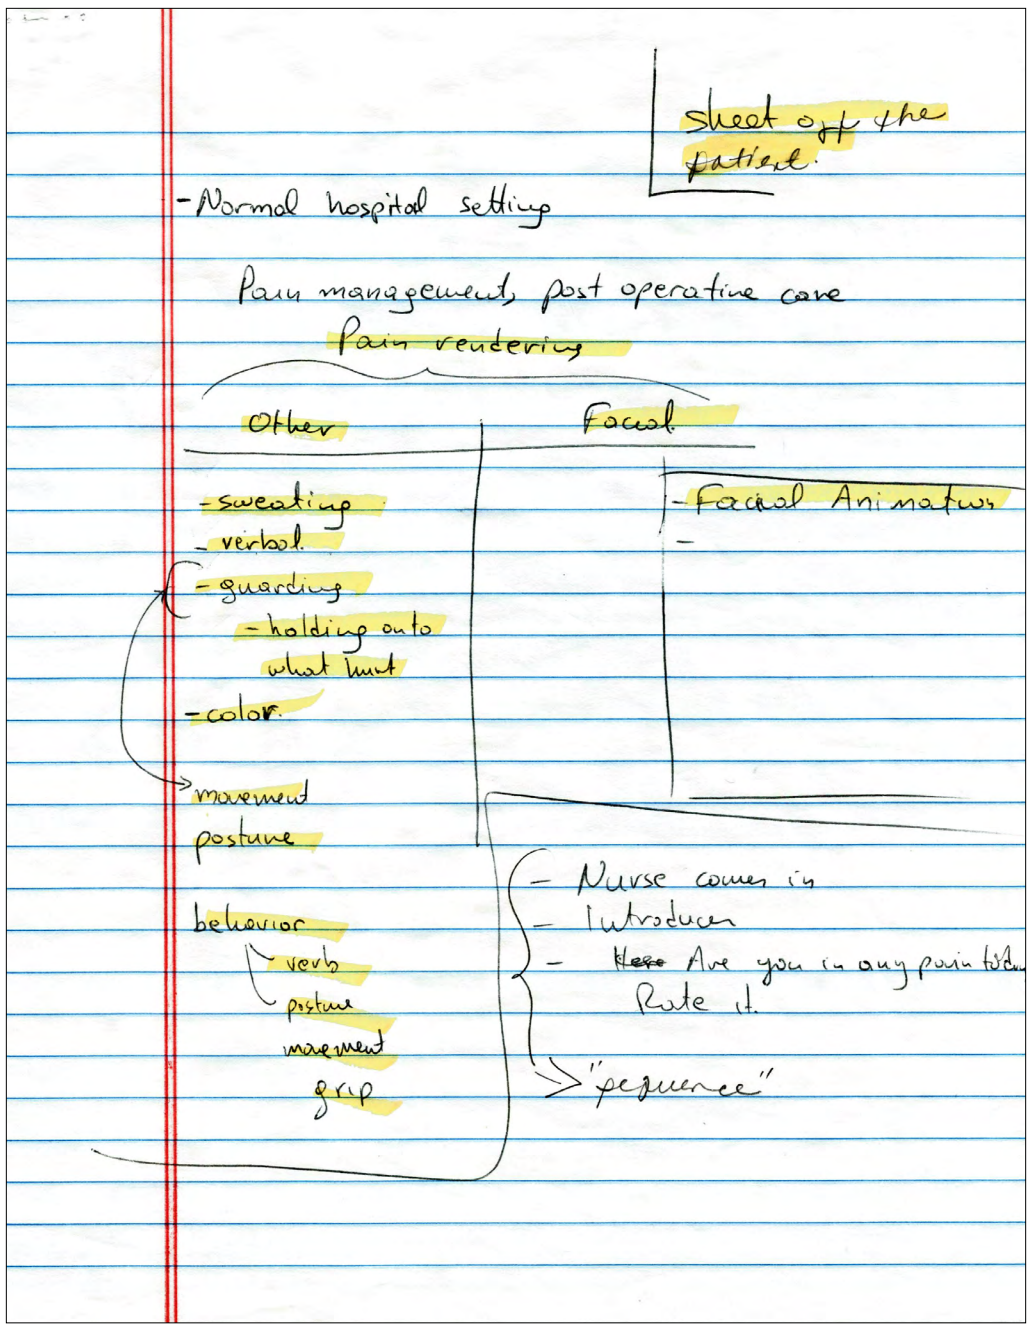 sheet off the
patient.
-Normal hospital setting
Pain management, post operative care
Pain rendering
Other
Facial
- sweating
- verbal.
- guarding
- holding onto
what hurt
- color.
movement
posture
behavior
verb
posture
movement
grip
- Facial Animation
-
- Nurse comes in
- Introduces
- Here Are you in any pain
Rate it.
"sequence"